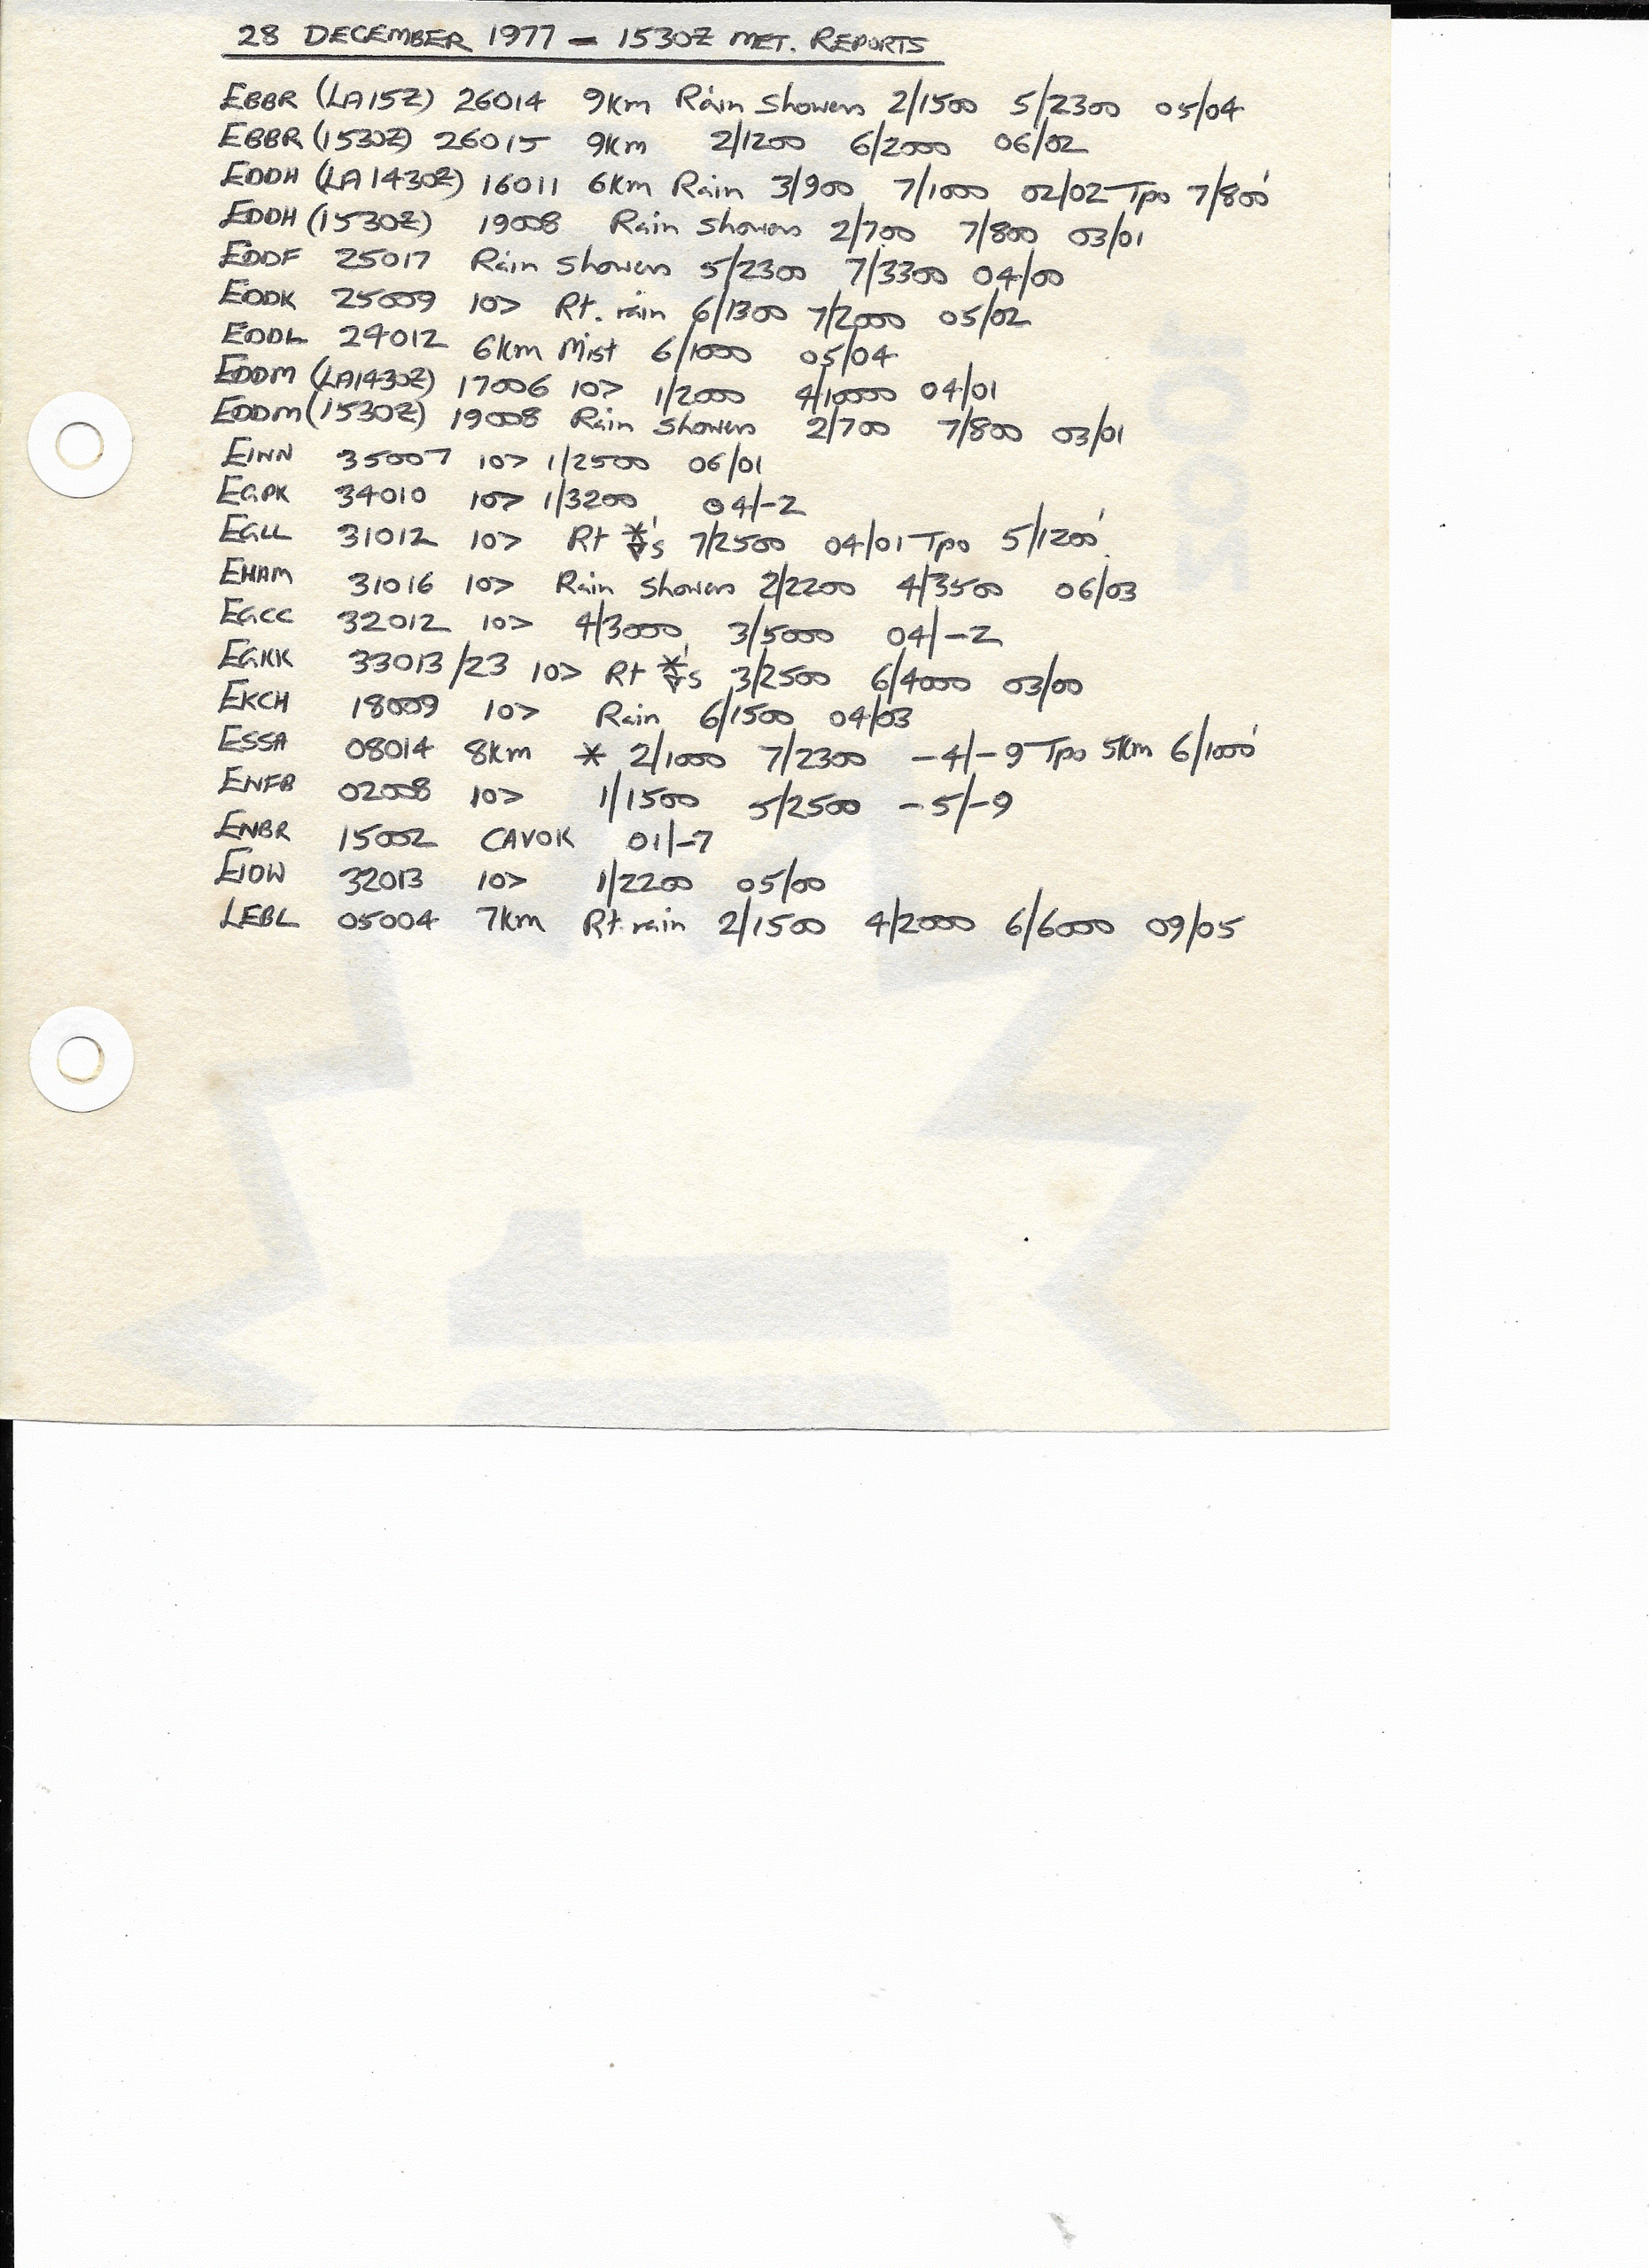 28 DECEMBER 1977 - 1530Z MET. REPORTS
EBBR (LA15Z) 26014 9Km Rain Showers 2/1500 5/2300 05/04
EBBR (1530Z) 26015 9Km 2/1200 6/2000 06/02
EDDH (LA1430Z) 16011 6Km Rain 3/900 7/1000 02/02 Tpo 7/800'
EDDH (1530Z) 19008 Rain Showers 2/700 7/800 03/01
EDDF 25017 Rain Showers 5/2300 7/3300 04/00
EDDK 25009 10> Rt. rain 6/1300 7/2000 05/02
EDDL 24012 6Km Mist 6/1000 05/04
EDDM (LA1430Z) 17006 10> 1/2000 4/10000 04/01
EDDM (1530Z) 19008 Rain Showers 2/700 7/800 03/01
EINN 35007 10> 1/2500 06/01
EGPK 34010 10> 1/3200 04/-2
EGLL 31012 10> Rt *▽'s 7/2500 04/01 Tpo 5/1200'
EHAM 31016 10> Rain Showers 2/2200 4/3500 06/03
EGCC 32012 10> 4/3000 3/5000 04/-2
EGKK 33013/23 10> Rt *▽'s 3/2500 6/4000 03/00
EKCH 18009 10> Rain 6/1500 04/03
ESSA 08014 8Km * 2/1000 7/2300 -4/-9 Tpo 5Km 6/1000'
ENFB 02008 10> 1/1500 5/2500 -5/-9
ENBR 15002 CAVOK 01/-7
EIDW 32013 10> 1/2200 05/00
LEBL 05004 7Km Rt. rain 2/1500 4/2000 6/6000 09/05